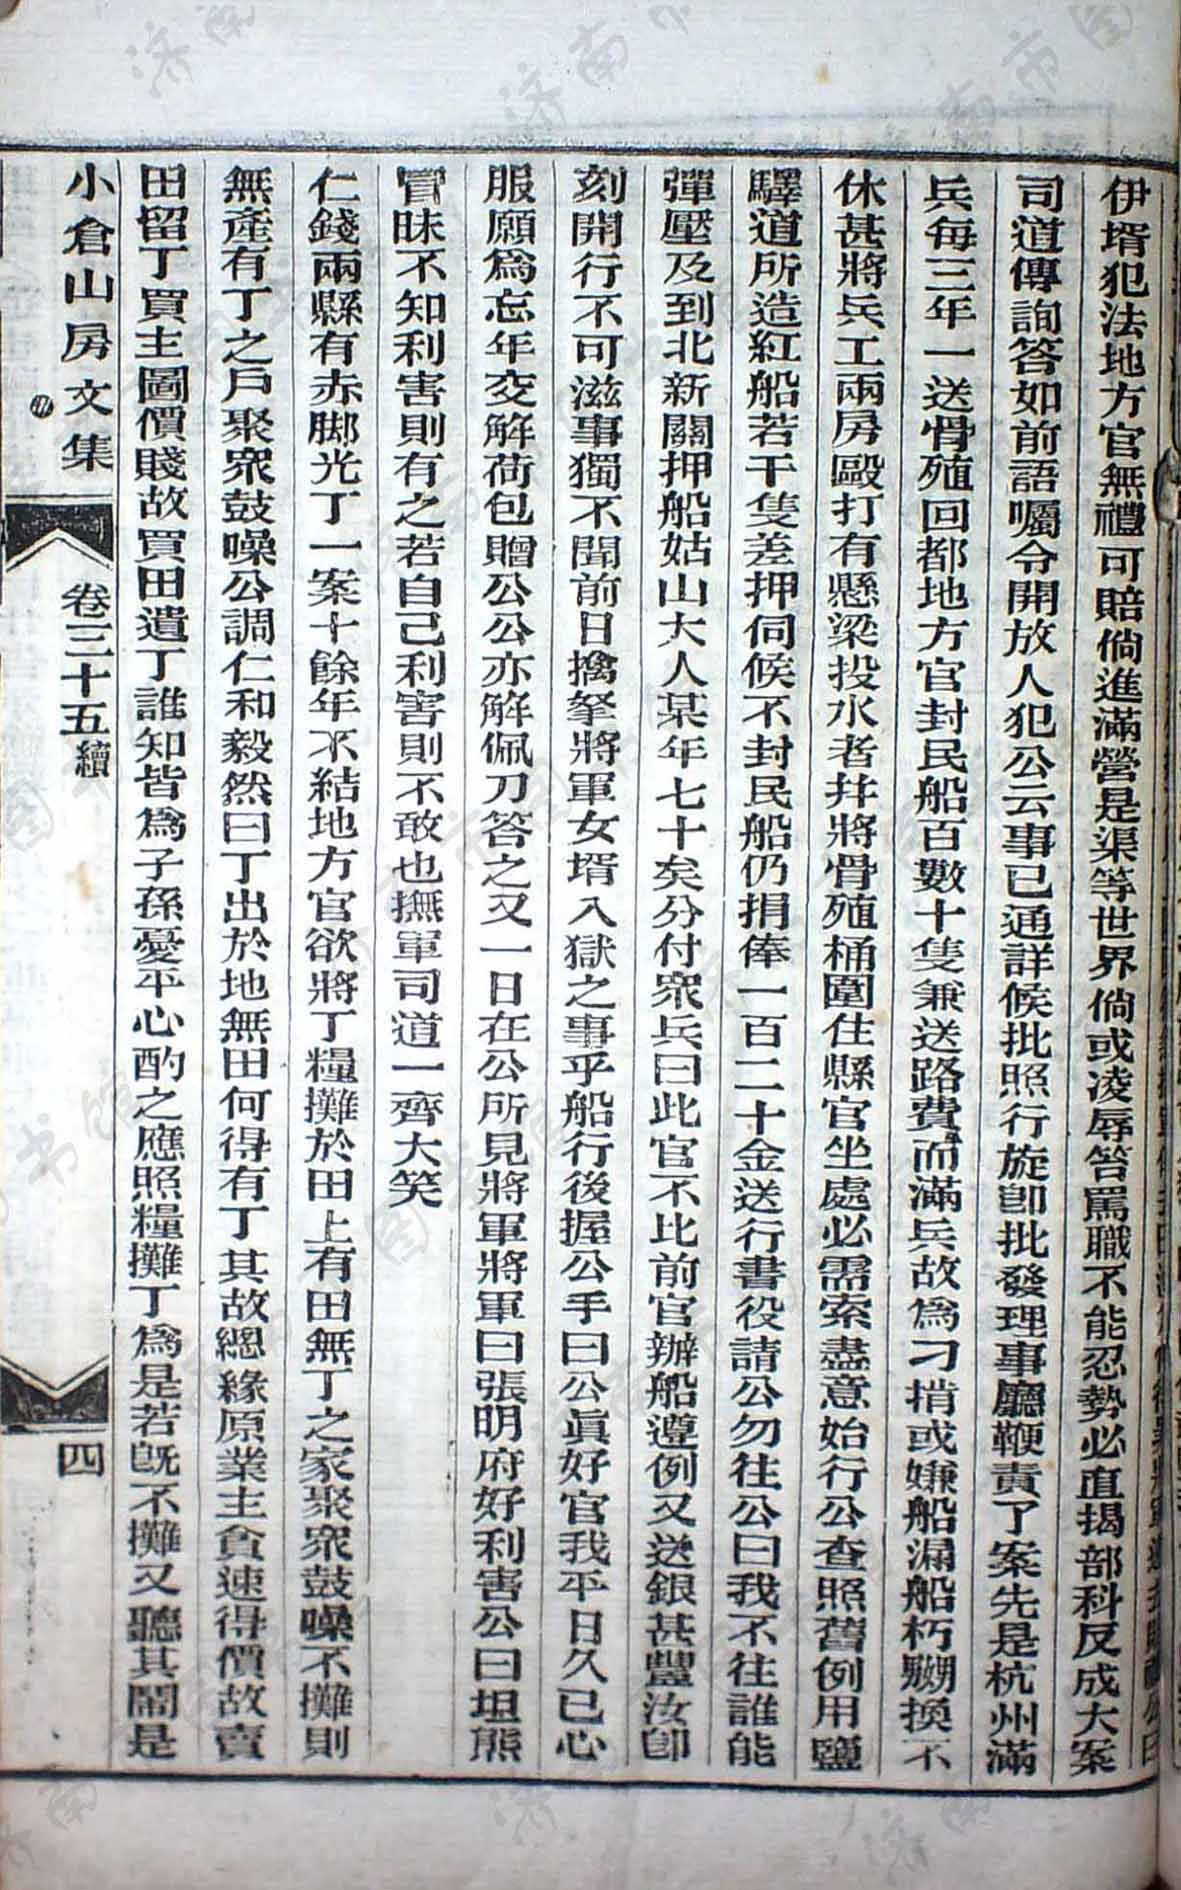 伊壻犯法地方官無禮可賠倘進滿營是渠等世界倘或凌辱笞罵職不能忍勢必直揭部科反成大案
司道傳詢答如前語囑令開放人犯公云事已通詳候批照行旋卽批發理事廳鞭責了案先是杭州滿
兵每三年一送骨殖回都地方官封民船百數十隻兼送路費而滿兵故爲刁掯或嫌船漏船朽嬲換不
休甚將兵工兩房毆打有懸梁投水者幷將骨殖桶圍住縣官坐處必需索盡意始行公查照舊例用鹽
驛道所造紅船若干隻差押伺候不封民船仍捐俸一百二十金送行書役請公勿往公曰我不往誰能
彈壓及到北新關押船姑山大人某年七十矣分付衆兵曰此官不比前官辦船遵例又送銀甚豐汝卽
刻開行不可滋事獨不聞前日擒拏將軍女壻入獄之事乎船行後握公手曰公眞好官我平日久已心
服願爲忘年交解荷包贈公公亦解佩刀答之又一日在公所見將軍將軍曰張明府好利害公曰坦熊
冒昧不知利害則有之若自己利害則不敢也撫軍司道一齊大笑
仁錢兩縣有赤脚光丁一案十餘年不結地方官欲將丁糧攤於田上有田無丁之家聚衆鼓噪不攤則
無產有丁之戶聚衆鼓噪公調仁和毅然曰丁出於地無田何得有丁其故總緣原業主貪速得價故賣
田留丁買主圖價賤故買田遺丁誰知皆爲子孫憂平心酌之應照糧攤丁爲是若旣不攤又聽其鬧是
小倉山房文集
卷三十五續
四